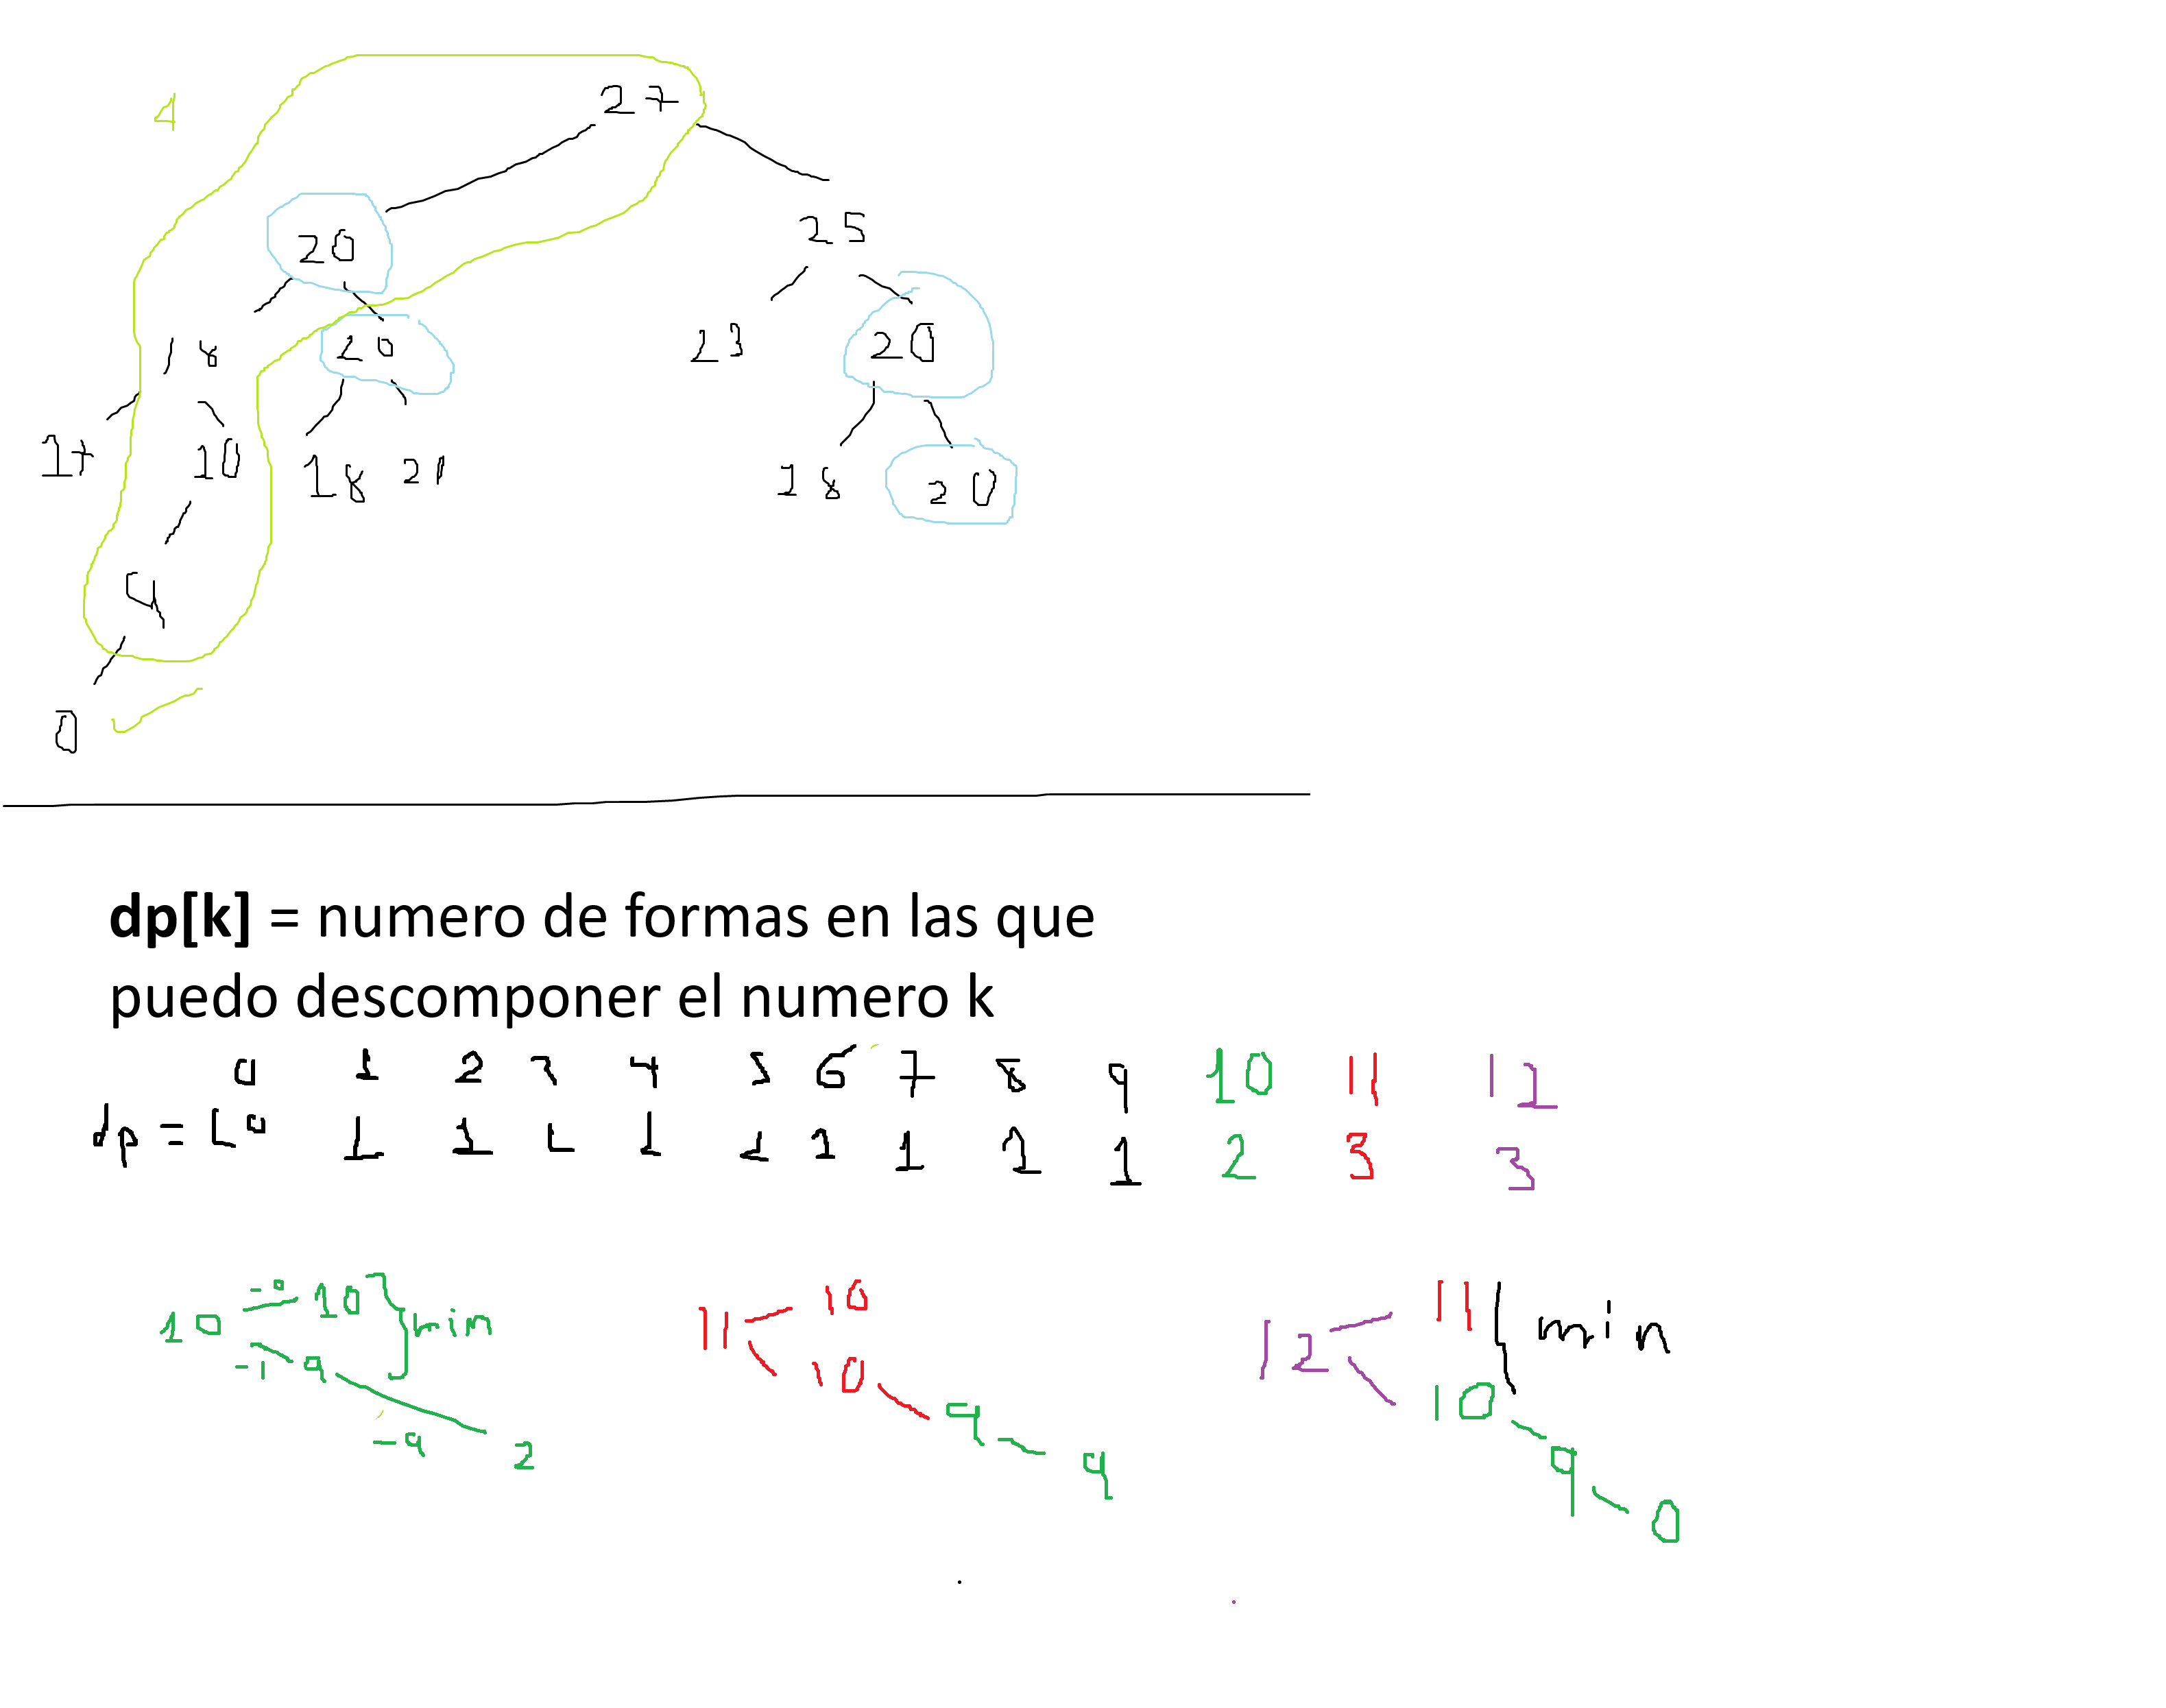 4
27
20 25
18 20 23 20
17 10 18 20
18 20
4
0
dp[k] = numero de formas en las que
puedo descomponer el numero k
0 1 2 3 4 5 6 7 8 9 10 11 12
dp = [0 1 1 1 1 1 1 1 1 1 2 3 3
10 -0 10 min
-1 9
-9 2
11 10
10
9 9
12 11 min
10
9
0